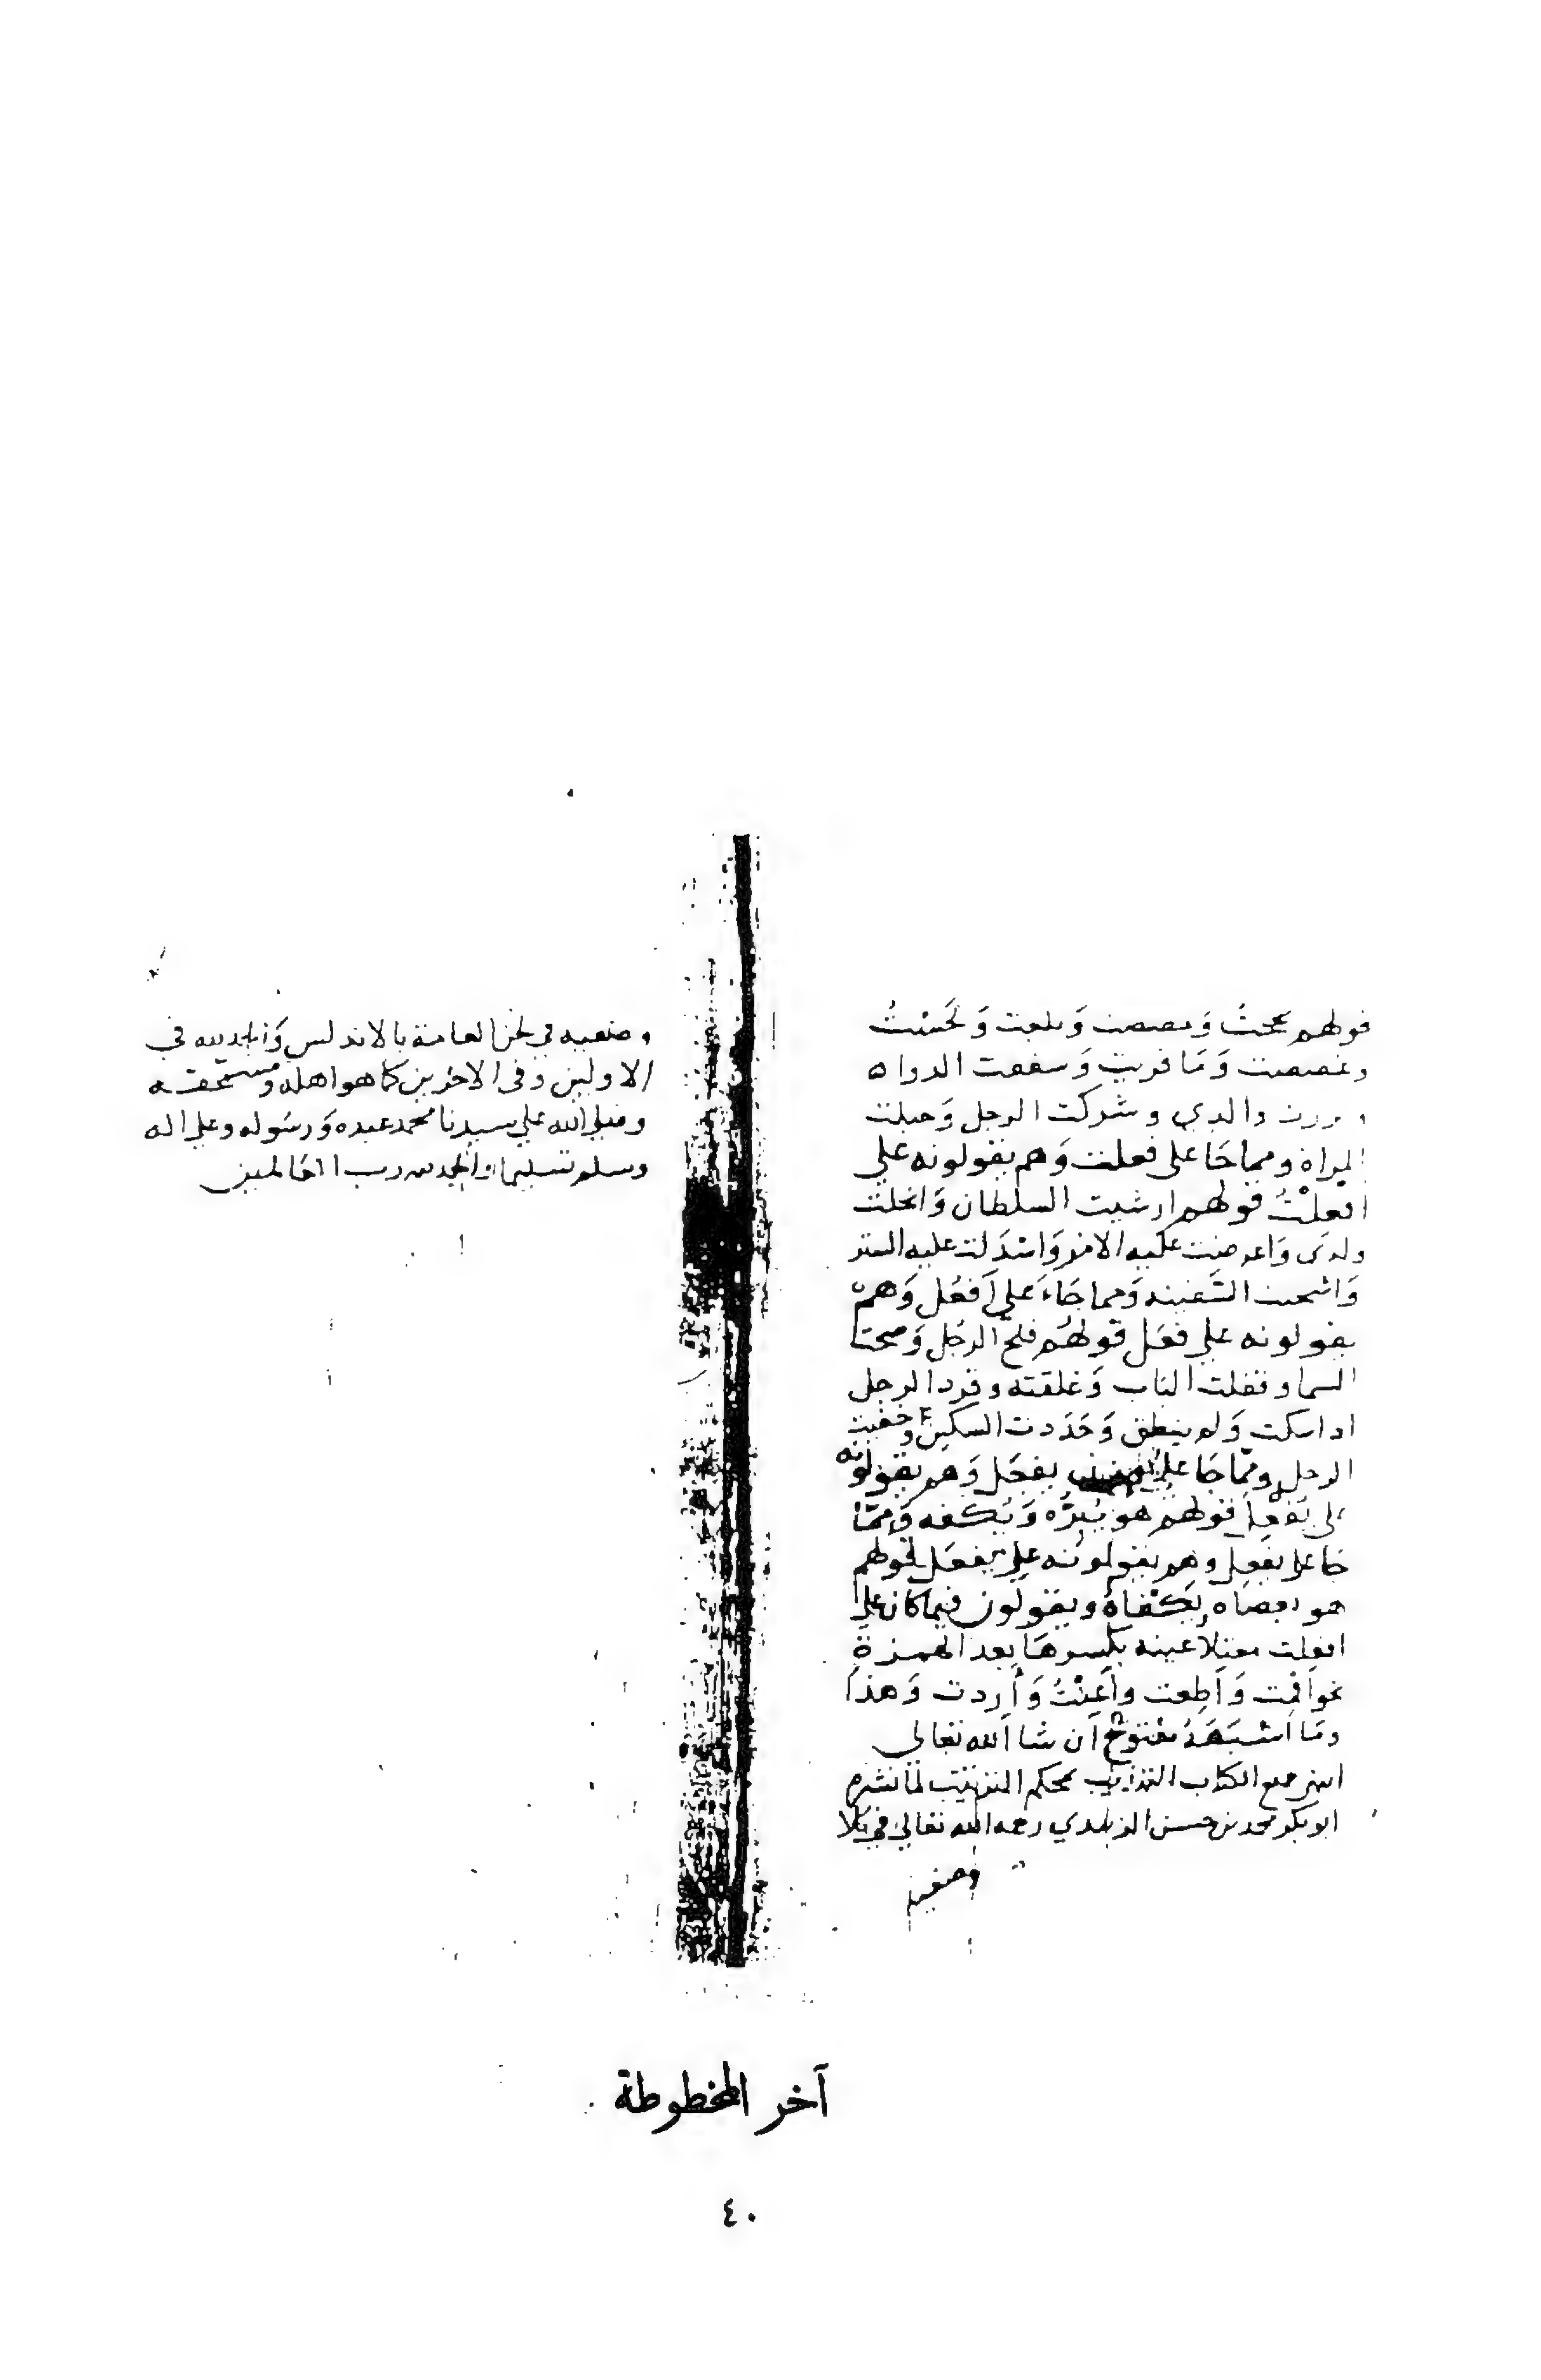 قولهم محجت ومصصت وبلعت ولحست
وغصصت وما قربت وسففت الدواه
وبررت والدي وشركت الرجل وحبلت
المراة ومما جا على فعلت وهم يقولونه على
افعلت قولهم ارشيت السلطان وانحلت
ولدى واعرضت عليه الامر واسدلت عليه الستر
واشحنت السفينه ومما جاء على افعل وهم
يقولونه على فعل قولهم فلح الرجل وصحت
السما وقفلت الباب وغلقته وقرد الرجل
اذا سكت ولم ينطق وحددت السكين وخفيت
الرجل ومما جا على يفعل وهم يقولونه
على يفعل قولهم هو يبره ويكفه ومما
جا على يفعل وهم يقولونه على يفعل قولهم
هو يكفاه ويقولون فيما كان على
افعلت معتلا عينه بكسرها بعد الهمزة
نحو اقمت واطعت واعنت واردت وهذا
وما اشبهه مفتوح ان شا الله تعالى
جميع الكتاب الترتيب لما نشره
ابو بكر محمد بن حسن الزبيدي رحمه الله تعالى في
وضعيه
وضعيه في لحن العامة بالاندلس والحمد لله في
الاولين وفى الاخرين كما هو اهله ومستحقه
وصلى الله على سيدنا محمد عبده ورسوله وعلى اله
وسلم تسليما والحمد لله رب العالمين
آخر المخطوطة
٤٠